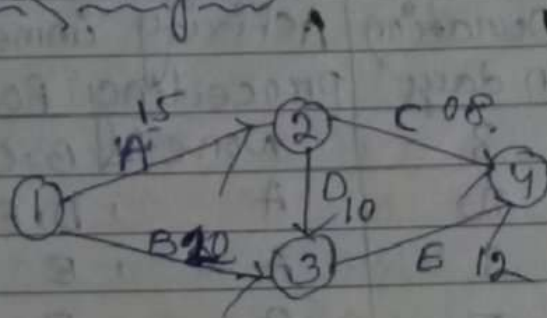 15
A
2
C 08.
1
D
10
4
B 20
3
E 12